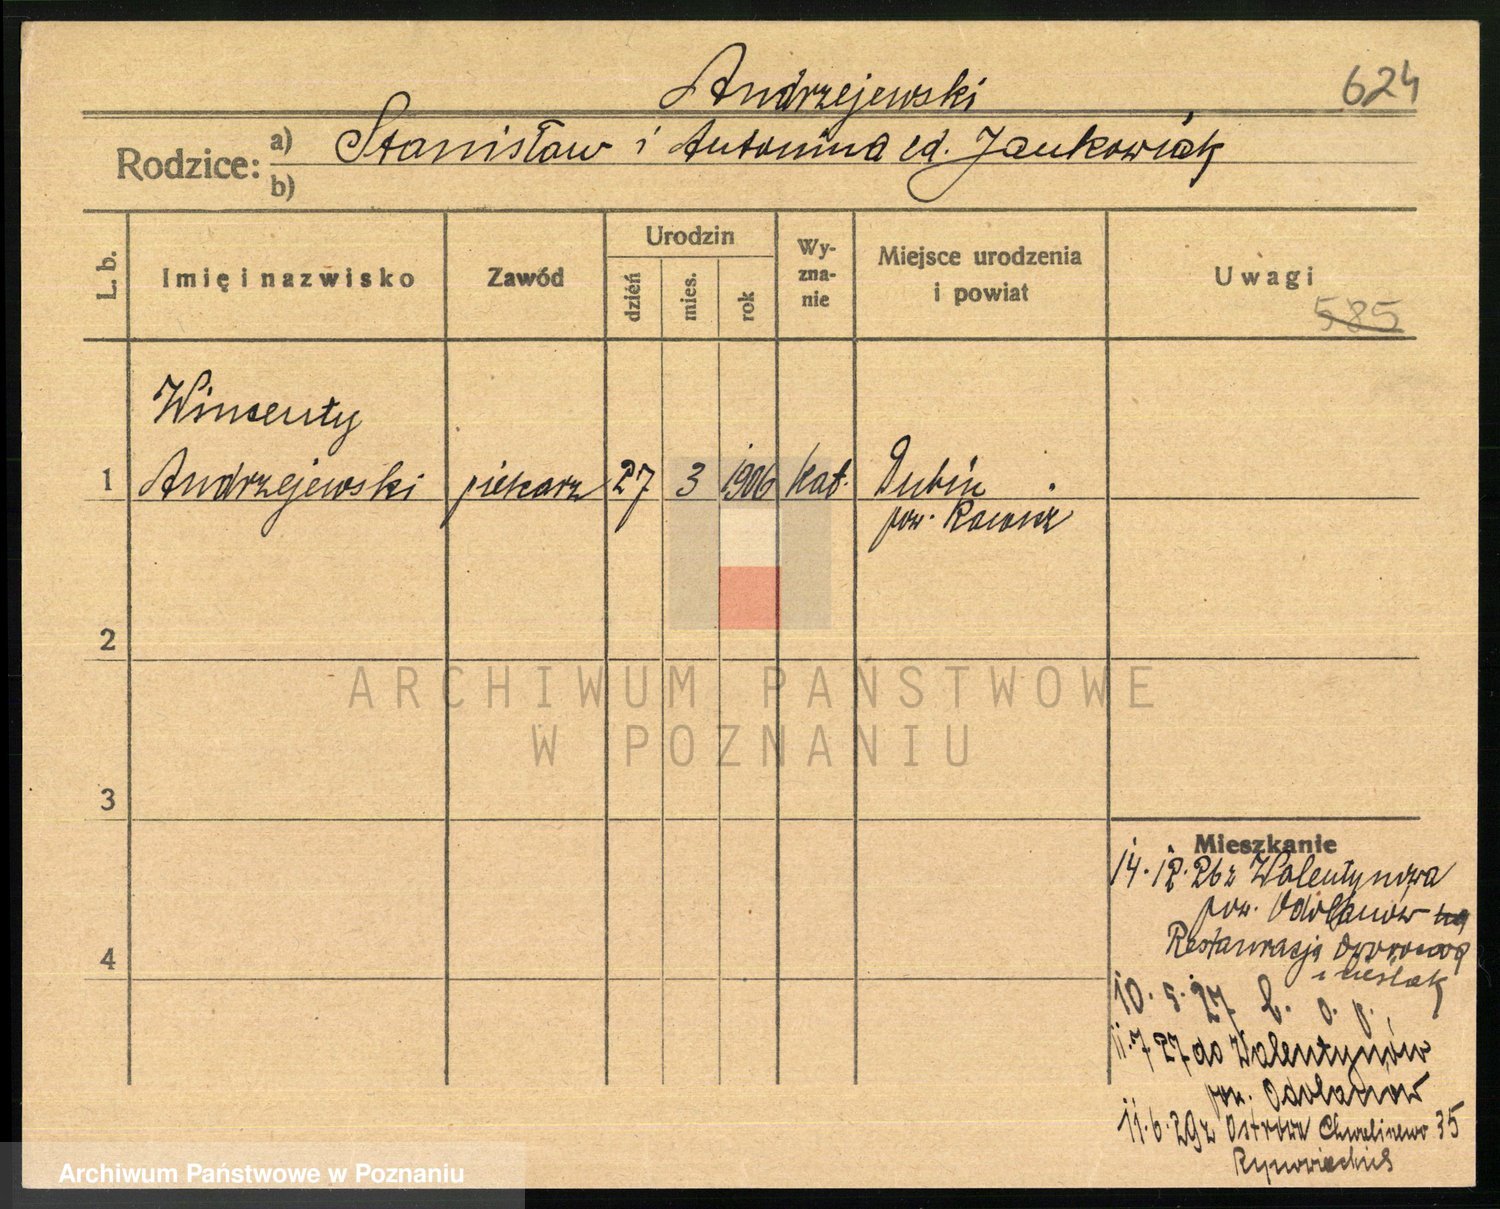 Andrzejewski
624
Rodzice:
a) Stanisław i Antonina cd. Jankowiak
b)
L. b.
Imię i nazwisko
Zawód
Urodzin
dzień
mies.
rok
Wy-
zna-
nie
Miejsce urodzenia
i powiat
Uwagi
585
Wincenty
1 Andrzejewski piekarz 27 3 1906 kat. Dubin
pow. Rawicz
2
3
4
Mieszkanie
14.12.26 z Walentynowa
pow. Odolanów
Restauracja
i Cieślak
10.5.27 b. o. p.
11.7 27 do Walentynów
pow. Odolanów
11.6.29 z Ostrowa 35
ARCHIWUM PAŃSTWOWE
W POZNANIU
Archiwum Państwowe w Poznaniu